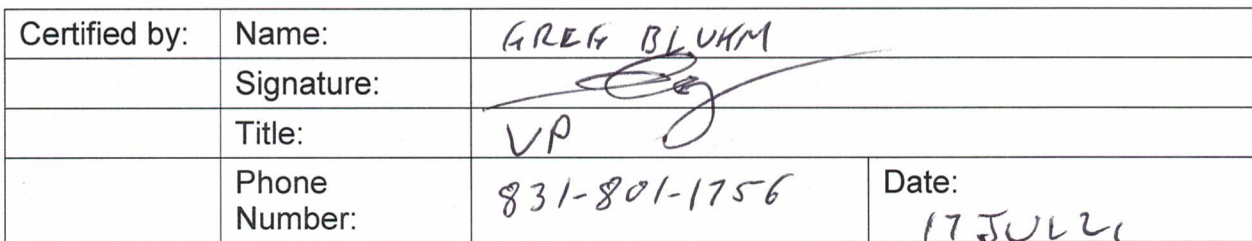 Certified by: Name: GREG BLUHM
Signature:
Title: VP
Phone Number: 831-801-1756 Date: 17 JUL 21